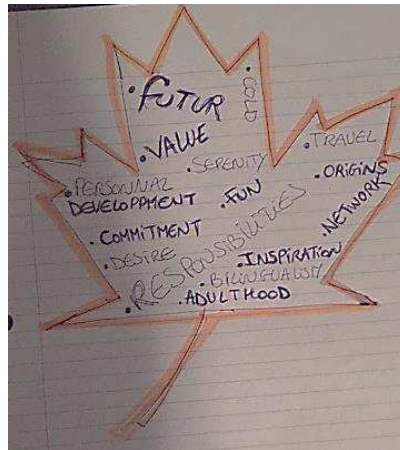 . FUTUR
. COLD
. VALUE
. TRAVEL
. SERENITY
. ORIGINS
. PERSONNAL
DEVELOPPMENT
. FUN
. NETWORK
. COMMITMENT
. DESIRE
. RESPONSIBILITIES
. INSPIRATION
. BILINGUALISM
. ADULTHOOD